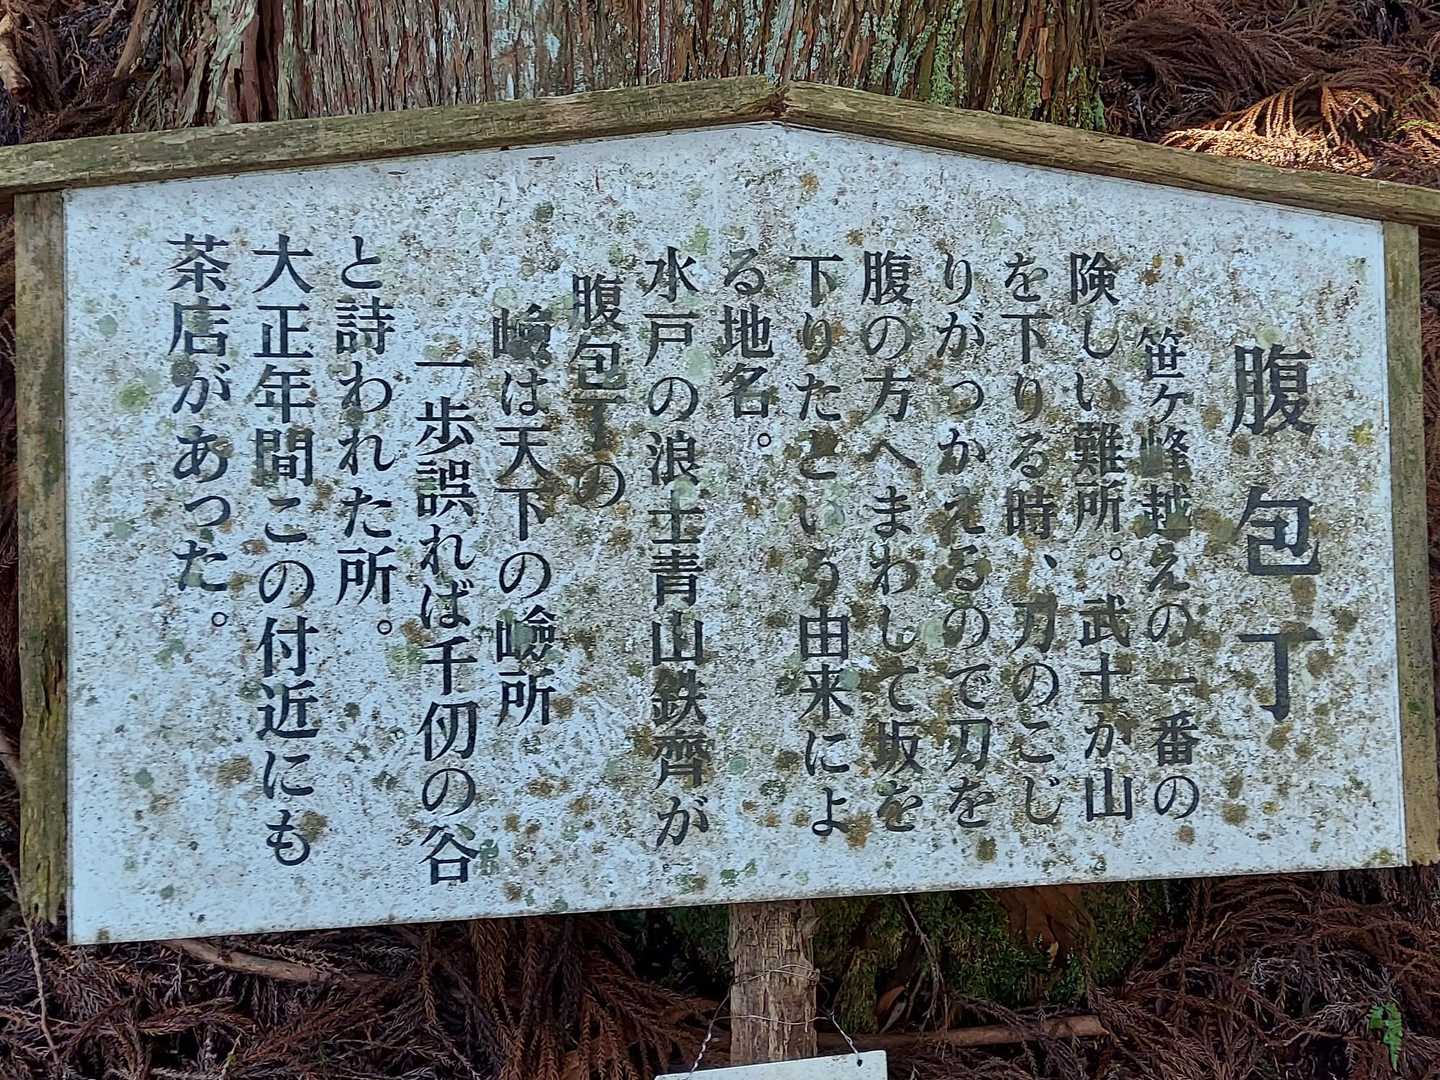 腹包丁
笹ヶ峰越えの一番の
険しい難所。武士が山
を下りる時、刀のこじ
りがつかえるので刀を
腹の方へまわして坂を
下りたという由来によ
る地名。
水戸の浪士青山鉄齊が
腹包丁の
嶮は天下の嶮所
一歩誤れば千仞の谷
と詩われた所。
大正年間この付近にも
茶店があった。